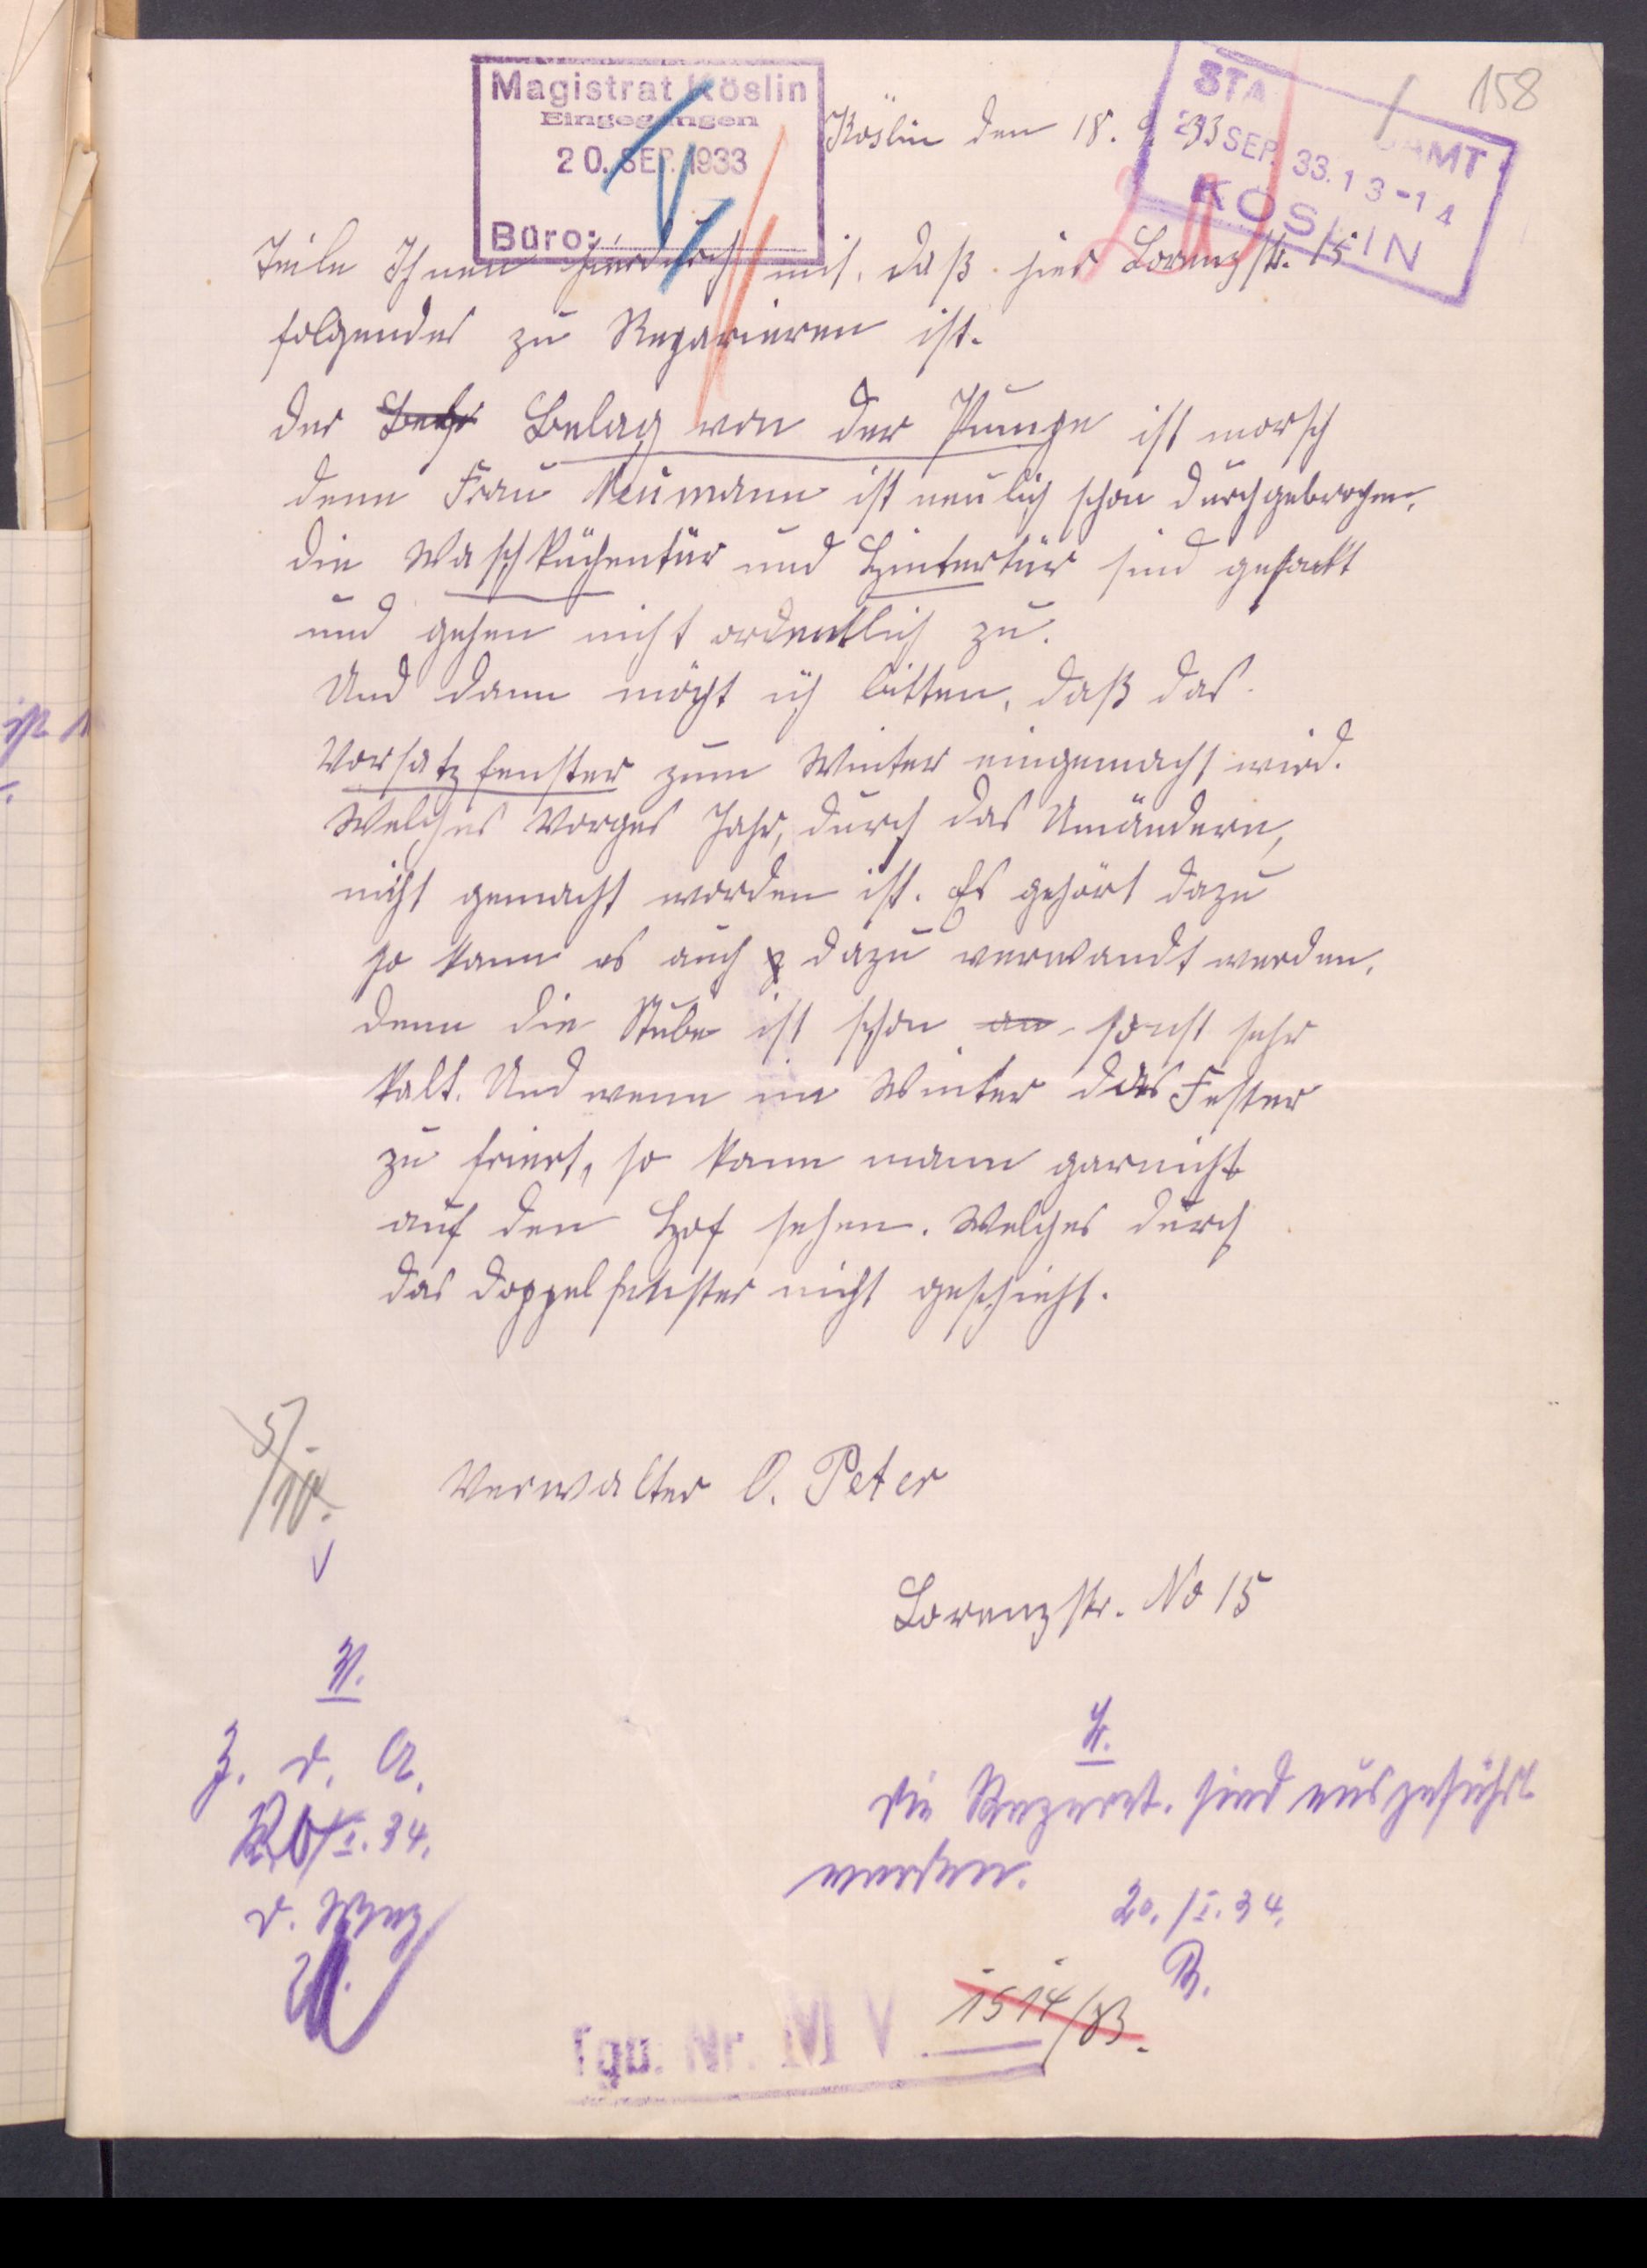 158
Magistrat Köslin
Eingegangen
20. SEP. 1933
Büro:
STA BAMT
SEP. 33. 13-14
KÖSLIN
Köslin den 18. 9. 33
Teile Ihnen hierdurch mit, daß hier Lorenzstr. 15
folgendes zu Reparieren ist.
Der Belag von der Pumpe ist morsch
denn Frau Neumann ist neulich schon durchgebrochen.
Die Waschküchentür und Hintertür sind gesackt
und gehen nicht ordentlich zu.
Und dann möcht ich bitten, daß das
Vorsatzfenster zum Winter eingemacht wird.
Welches Vorges Jahr, durch das Umändern,
nicht gemacht worden ist. Es gehört dazu
so kann es auch dazu verwandt werden,
denn die Stube ist schon an sonst sehr
kalt. Und wenn im Winter das Fester
zu friert, so kann mann garnicht
auf den Hof sehen. Welches durch
das Doppelfenster nicht geschieht.
5/10.
Verwalter O. Peter
Lorenzstr. No 15
V.
Z. d. A.
/I. 34.
V.
Die Reparat. sind ausgeführt
worden.
20./I. 34.
R.
Tgb. Nr. M V 1514/33.